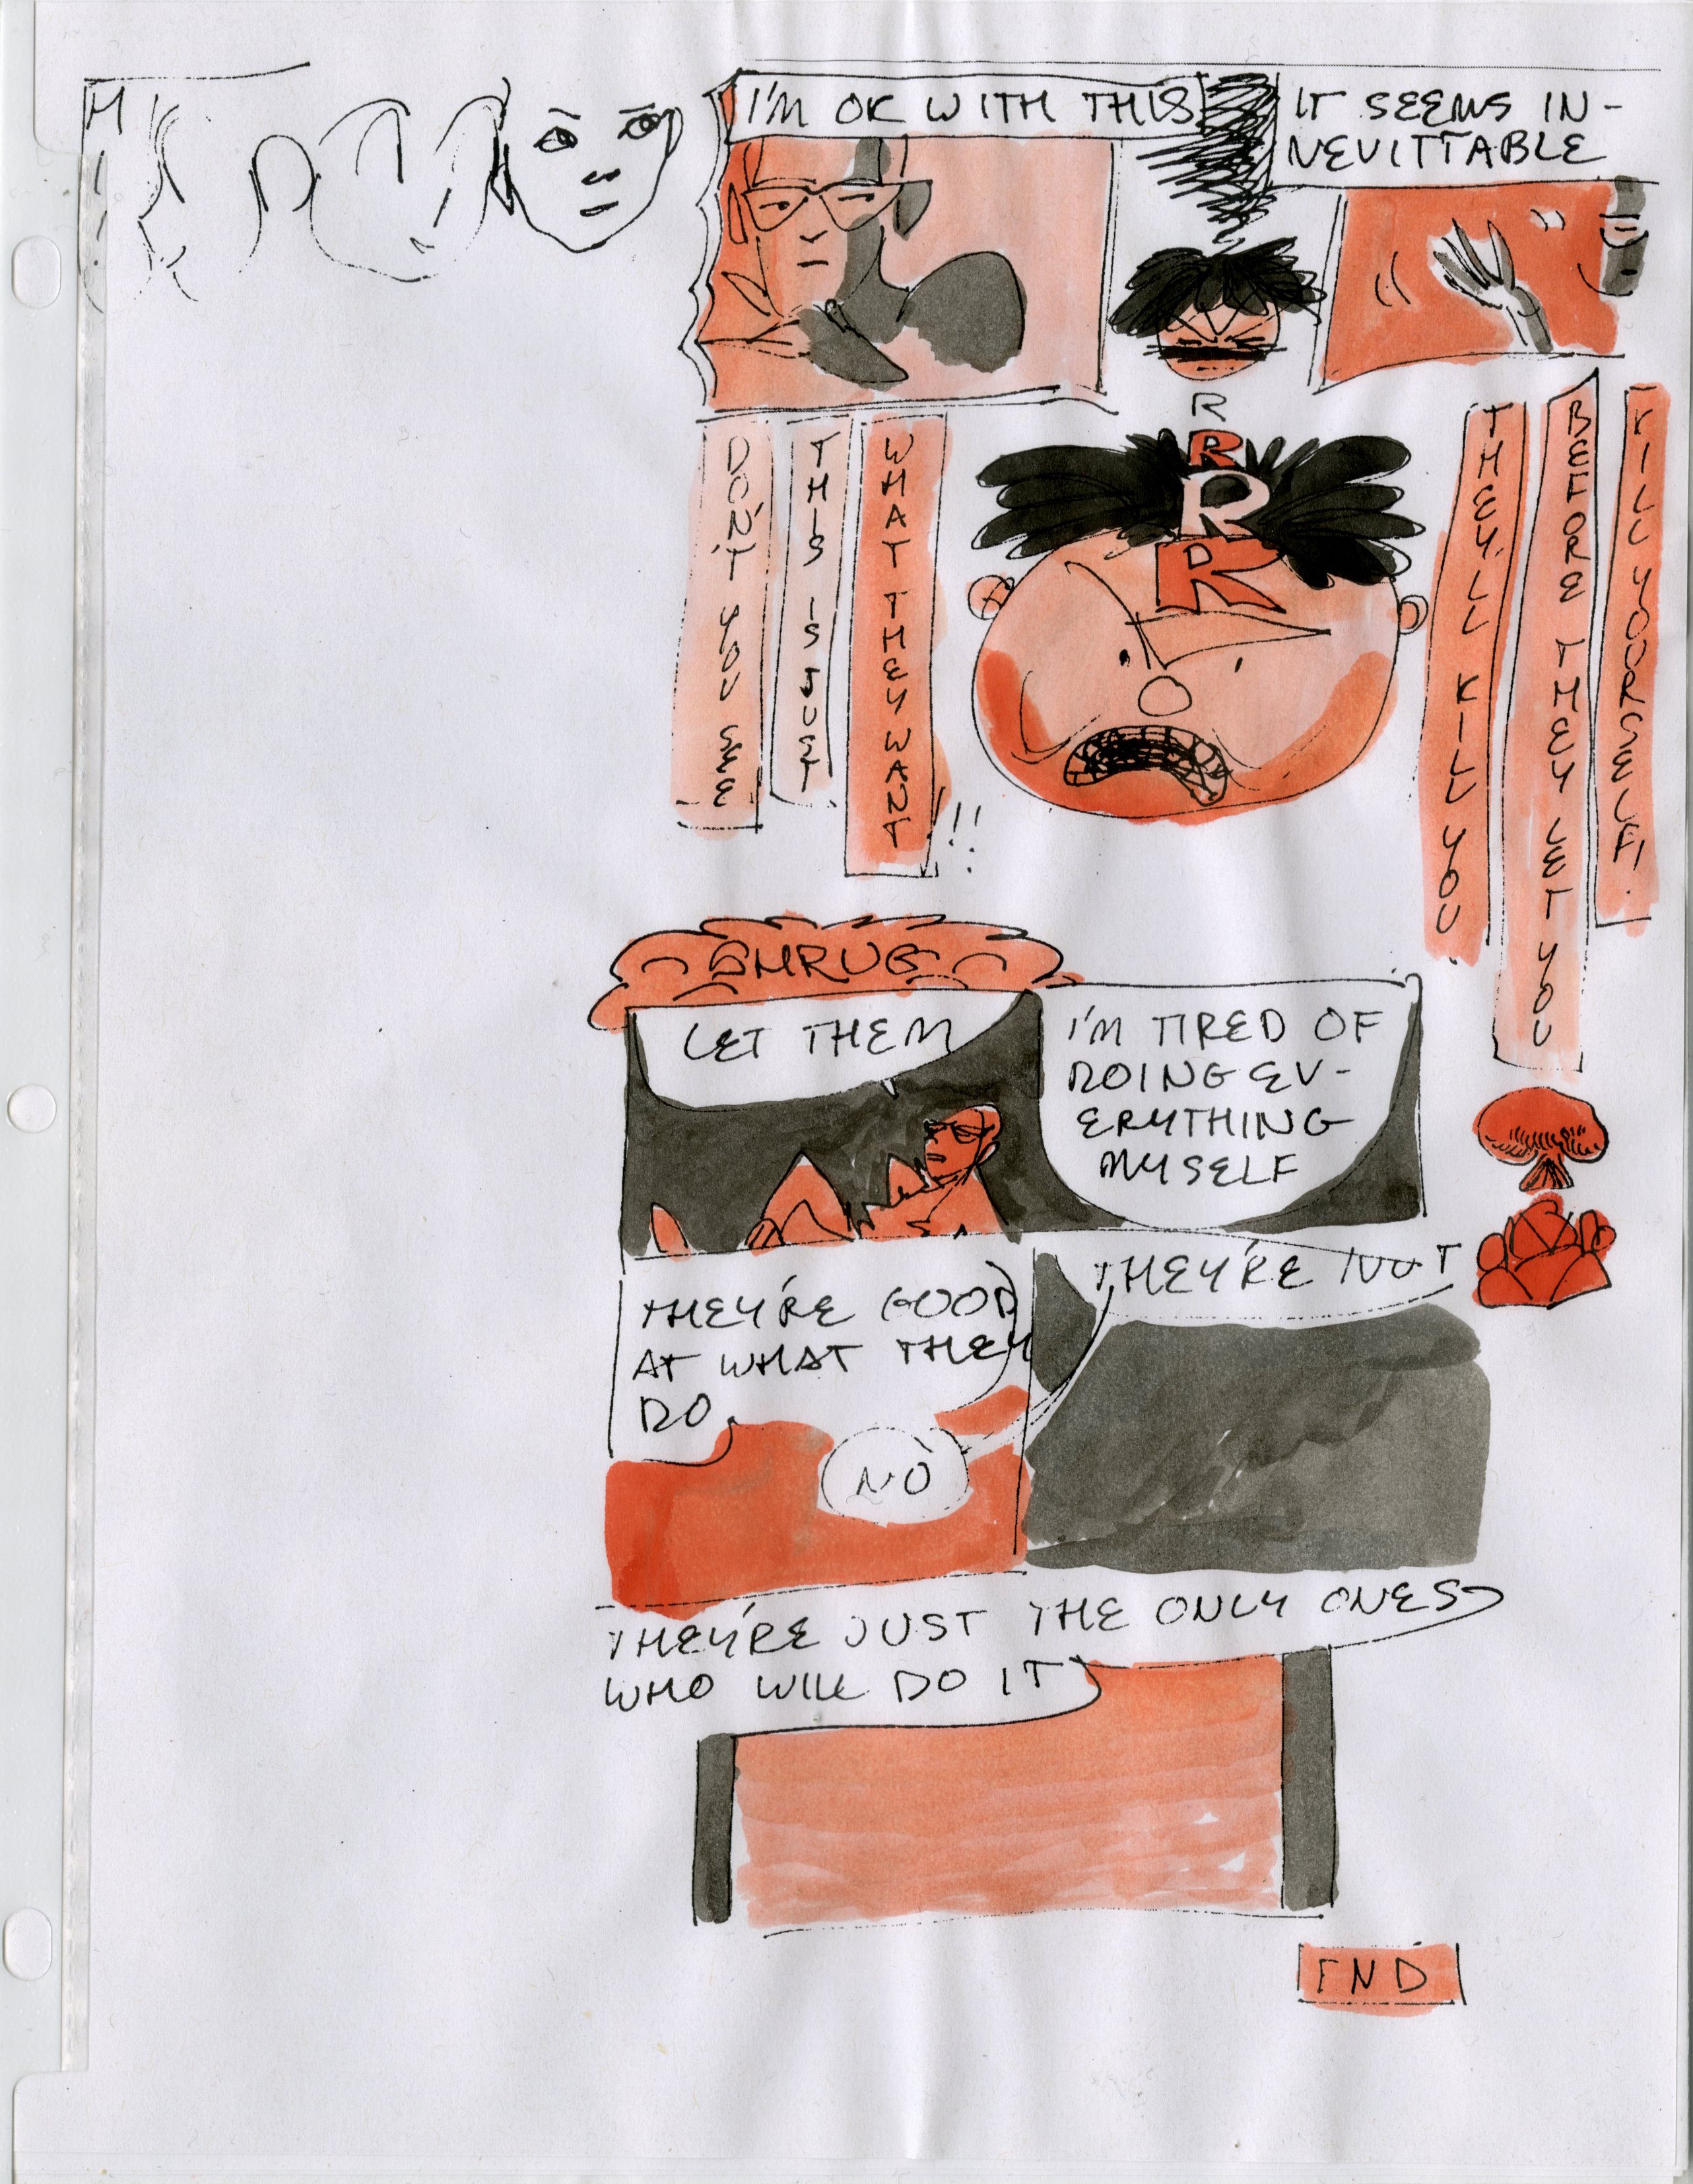 I'M OK WITH THIS
IT SEEMS IN-
NEVITTABLE
R
R
R
R
DON'T YOU SEE
THIS IS JUST
WHAT THEY WANT!!
THEY'LL KILL YOU
BEFORE THEY LET YOU
KILL YOURSELF!
SHRUG
LET THEM
I'M TIRED OF
DOING EV-
ERYTHING
MYSELF
THEY'RE GOOD
AT WHAT THEY
DO
NO
THEY'RE NOT
THEY'RE JUST THE ONLY ONES
WHO WILL DO IT
END